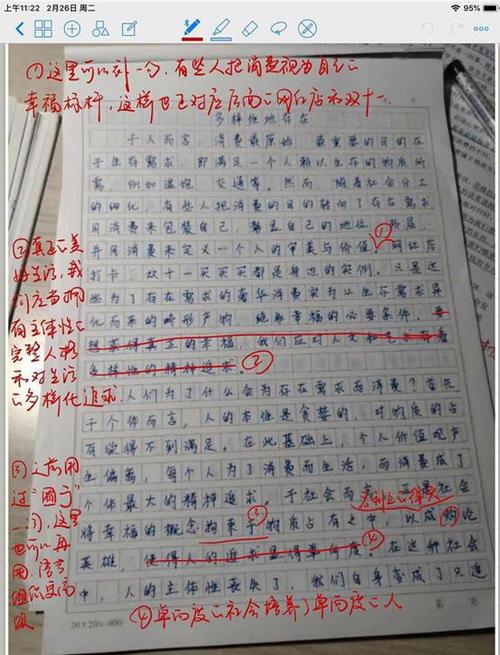 上午11:22 2月26日 周二
95%
(1)这里可以补一句,有些人把消费视为自己的
幸福标杆,这样也已对应后面的网红店和双十一
多样性地存在
于人而言,消费最原始、最重要的目的在
于生存需求,即满足一个人赖以生存的物质所
需,例如温饱、交通等。然而,随着社会分工
的细化,有些人把消费的目的转向了存在需求
用消费来包装自己,彰显自己的地位、阶层,
并用消费来定义一个人的审美与价值。①网红店
打卡、双十一买买买都是身边的实例。只是这
些为了存在需求的奢华消费实为从生存需求异
化而来的畸形产物,绝非幸福的必要条件。要
想获得真正的幸福,我们应对人文和艺术有着
多样性的精神追求。②
人们为了什么会为存在需求而消费?首先
于个体而言,人的本性是贪婪的,对物质的占
有欲得不到满足。在此基础上,个人价值观产
生偏离,每个人为了消费而生活,而消费成了
个体最大的精神追求。于社会而言,正是社会
将幸福的概念拘束于③物质占有之中,以成败论
英雄,使得人的追求显得单向度。④在这种社会
中,人的主体性丧失了,我们自身变成了只追
②真正的美
好生活,我
们应当拥
有主体性的
完整人格
和对生活
的多样化追求.
③
过“囿于”
也可以再
④单向度的社会培养了单向度的人
20×20=400
第 页